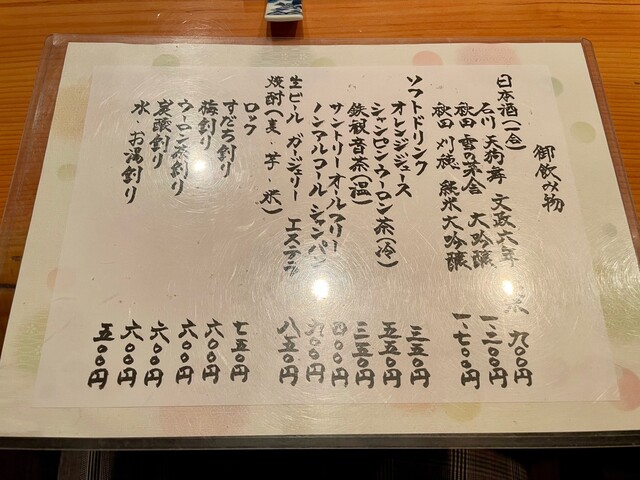 御飲み物
日本酒(一合)
石川 天狗舞 文政六年 九〇〇円
秋田 雪の茅舎 大吟醸 一、三〇〇円
秋田 刈穂 純米大吟醸 一、七〇〇円
ソフトドリンク
オレンジジュース 三五〇円
シャンピンウーロン茶(冷) 五五〇円
鉄観音茶(温) 三五〇円
サントリーオールフリー 四〇〇円
ノンアルコール シャンパン 九〇〇円
生ビール ガージェリー エステラ 八五〇円
焼酎(麦・芋・米)
ロック 七五〇円
すだち割り 六〇〇円
梅割り 六〇〇円
ウーロン茶割り 六〇〇円
炭酸割り 六〇〇円
水・お湯割り 五〇〇円